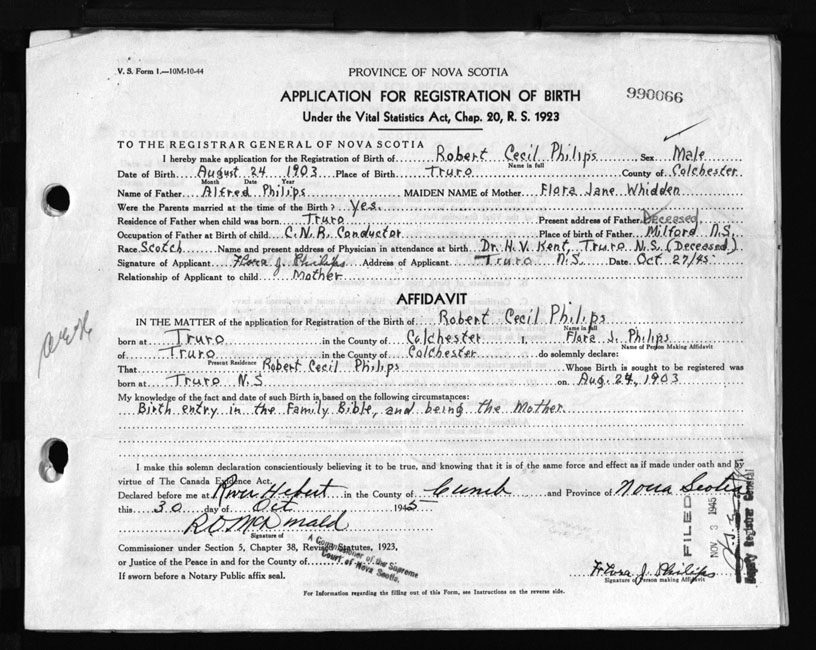 V. S. Form 1.—10M-10-44
PROVINCE OF NOVA SCOTIA
APPLICATION FOR REGISTRATION OF BIRTH
990066
Under the Vital Statistics Act, Chap. 20, R. S. 1923
TO THE REGISTRAR GENERAL OF NOVA SCOTIA
I hereby make application for the Registration of Birth of Robert Cecil Philips Sex Male
Name in full
Date of Birth August 24 1903 Place of Birth Truro County of Colchester
Month Date Year
Name of Father Alfred Philips MAIDEN NAME of Mother Flora Jane Whidden
Were the Parents married at the time of the Birth? Yes.
Residence of Father when child was born Truro Present address of Father Deceased
Occupation of Father at Birth of Child C.N.R. Conductor Place of birth of Father Milford N.S.
Race Scotch Name and present address of Physician in attendance at birth Dr. H.V. Kent, Truro N.S. (Deceased)
Signature of Applicant Flora J. Philips Address of Applicant Truro N.S. Date Oct 27/45
Relationship of Applicant to child Mother
AFFIDAVIT
IN THE MATTER of the application for Registration of the Birth of Robert Cecil Philips
Name in full
born at Truro in the County of Colchester I, Flora J. Philips
Name of Person Making Affidavit
of Truro in the County of Colchester do solemnly declare:
Present Residence
That Robert Cecil Philips Whose Birth is sought to be registered was
born at Truro N.S on Aug. 24, 1903
My knowledge of the fact and date of such Birth is based on the following circumstances:
Birth entry in the Family Bible, and being the Mother
I make this solemn declaration conscientiously believing it to be true, and knowing that it is of the same force and effect as if made under oath and by
virtue of The Canada Evidence Act.
Declared before me at River Hebert in the County of Cumb and Province of Nova Scotia
this 30 day of Oct 1945
Signature of
A Commissioner of the Supreme
Court of Nova Scotia.
Commissioner under Section 5, Chapter 38, Revised Statutes, 1923,
or Justice of the Peace in and for the County of
If sworn before a Notary Public affix seal.
Flora J. Philips
Signature of Person making Affidavit
FILED
NOV 3 1945
Deputy Registrar General
For Information regarding the filling out of this Form, see Instructions on the reverse side.